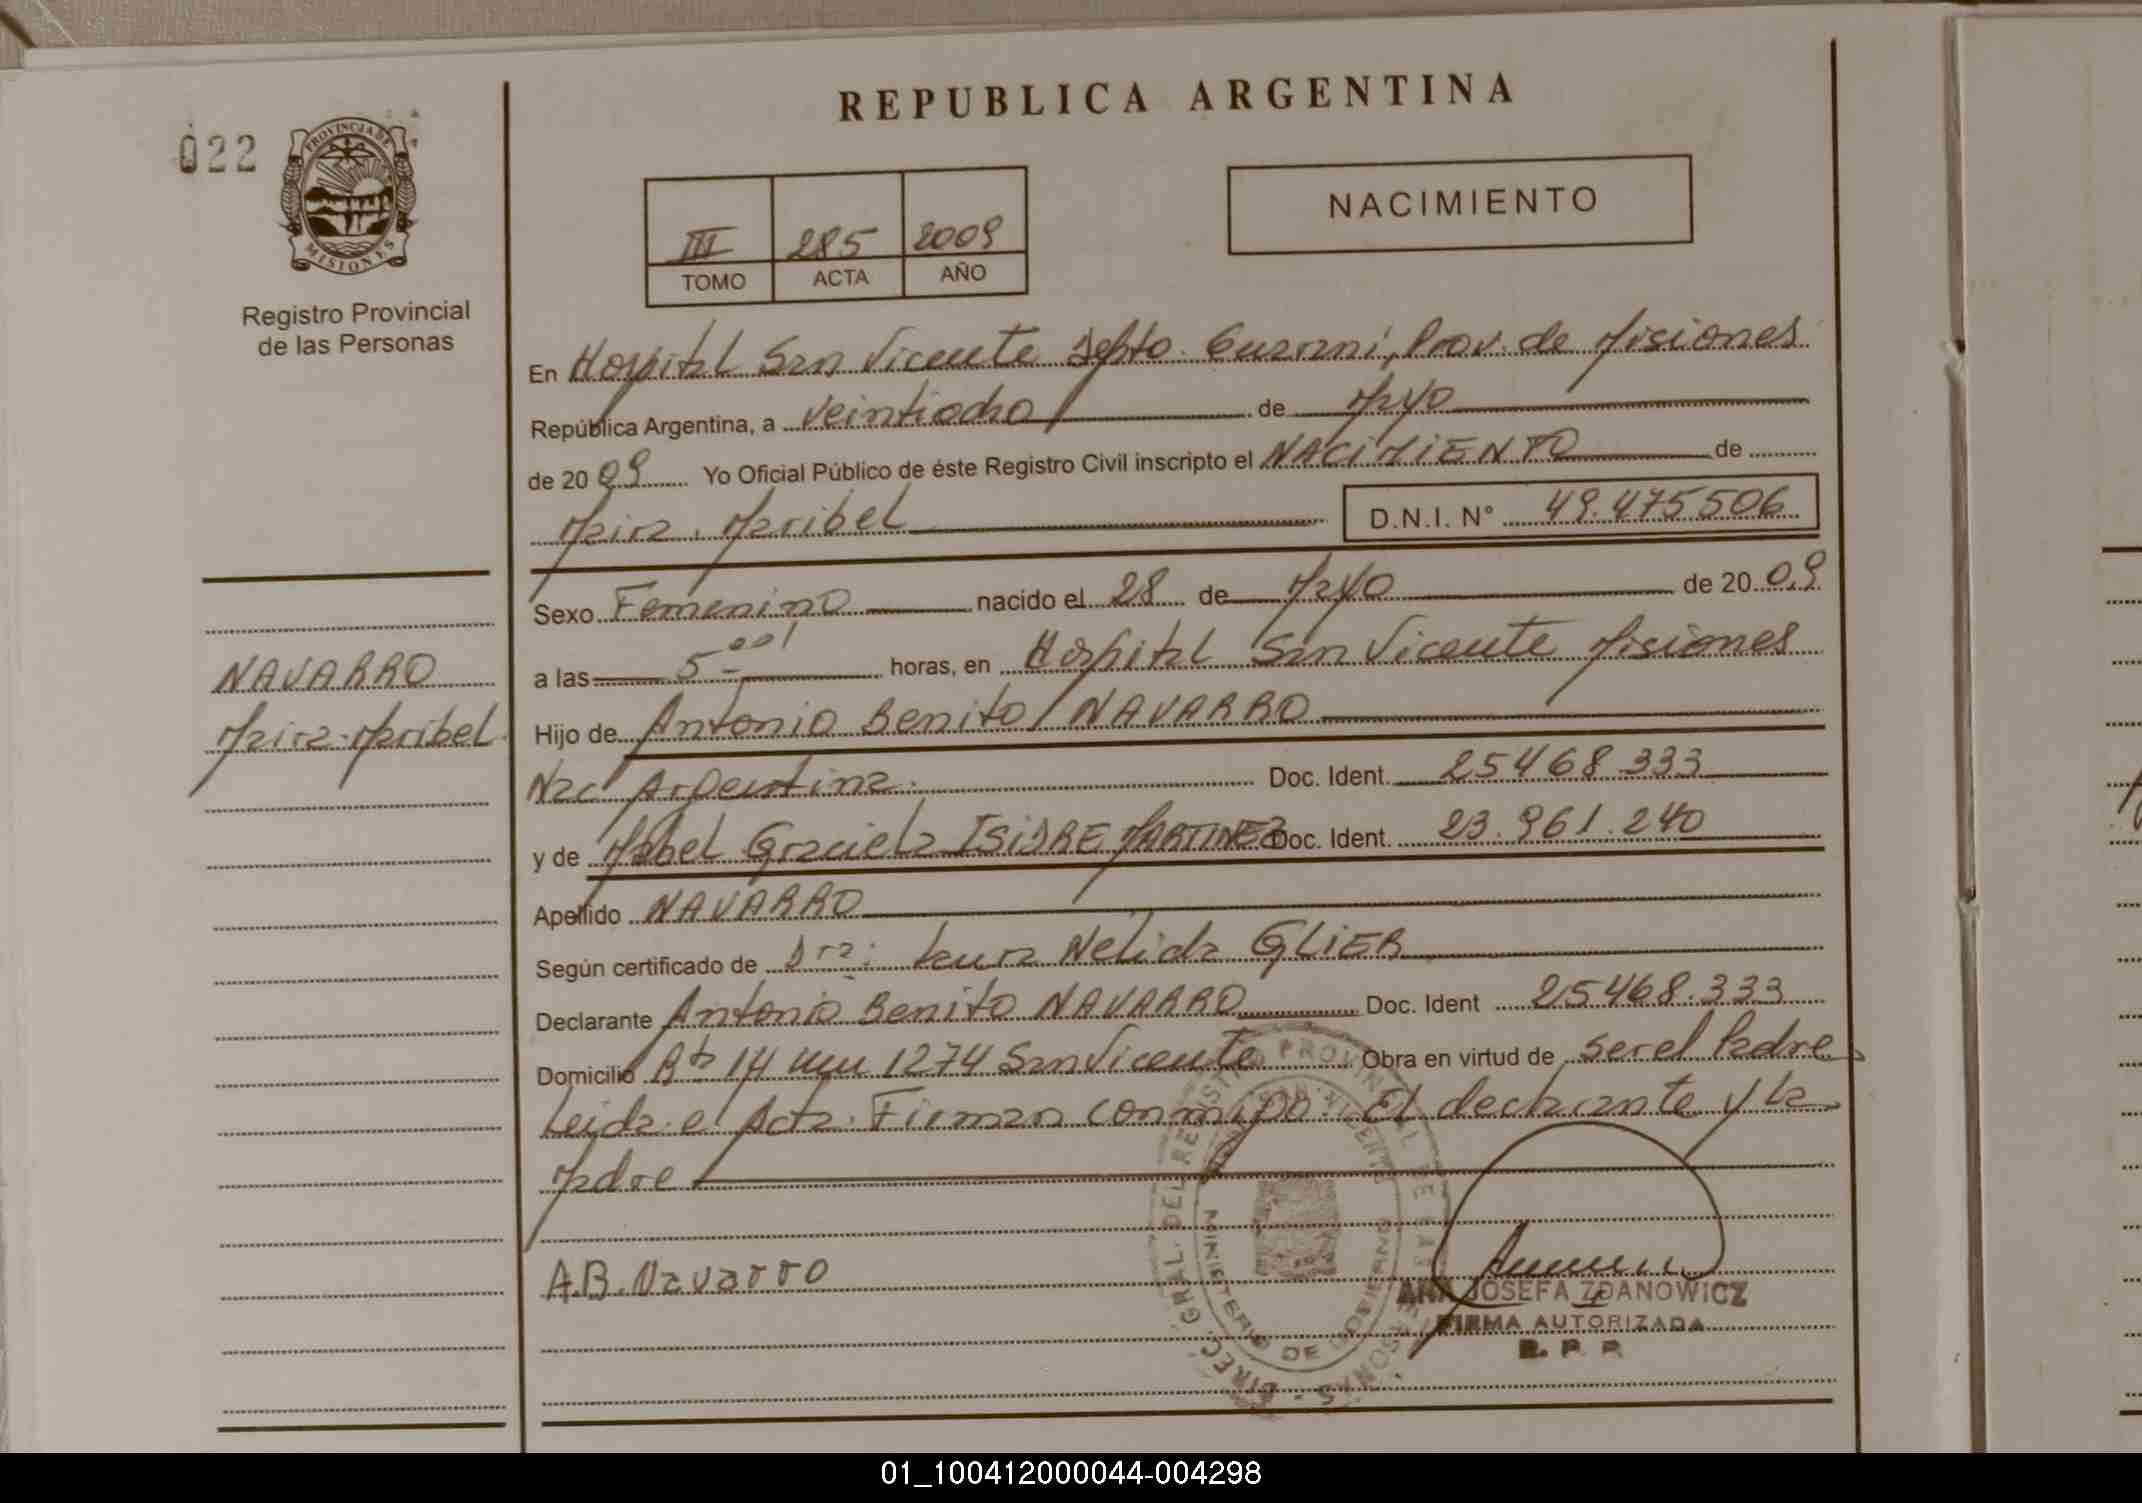 REPUBLICA ARGENTINA
022
PROVINCIA DE
MISIONES
Registro Provincial
de las Personas
III 285 2009
TOMO ACTA AÑO
NACIMIENTO
En Hospital San Vicente Depto. Guarani, Prov. de Misiones
República Argentina, a veintiocho de Mayo
de 20 09 Yo Oficial Público de éste Registro Civil inscripto el NACIMIENTO de
Maira Maribel D.N.I. N° 49.475506
Sexo Femenino nacido el 28 de Mayo de 20 09
a las 5 00' horas, en Hospital San Vicente Misiones
NAVARRO
Maira Maribel
Hijo de Antonio Benito NAVARRO
Nac Argentina. Doc. Ident. 25468.333
y de Mabel Graciela ISIDRE MARTINEZ Doc. Ident. 23.961.240
Apellido NAVARRO
Según certificado de Dra: Laura Nelida GLIER
Declarante Antonio Benito NAVARRO Doc. Ident 25468.333
Domicilio Rta 14 km 1274 San Vicente Obra en virtud de ser el Padre
Leida el Acta. Firman conmigo. El declarante y la
Madre
A.B. Navarro
DIREC. GRAL. DEL REGISTRO PROVINCIAL DE LAS PERSONAS
MINISTERIO DE GOBIERNO
ANA JOSEFA ZDANOWICZ
FIRMA AUTORIZADA
R. P. P.
01_100412000044-004298